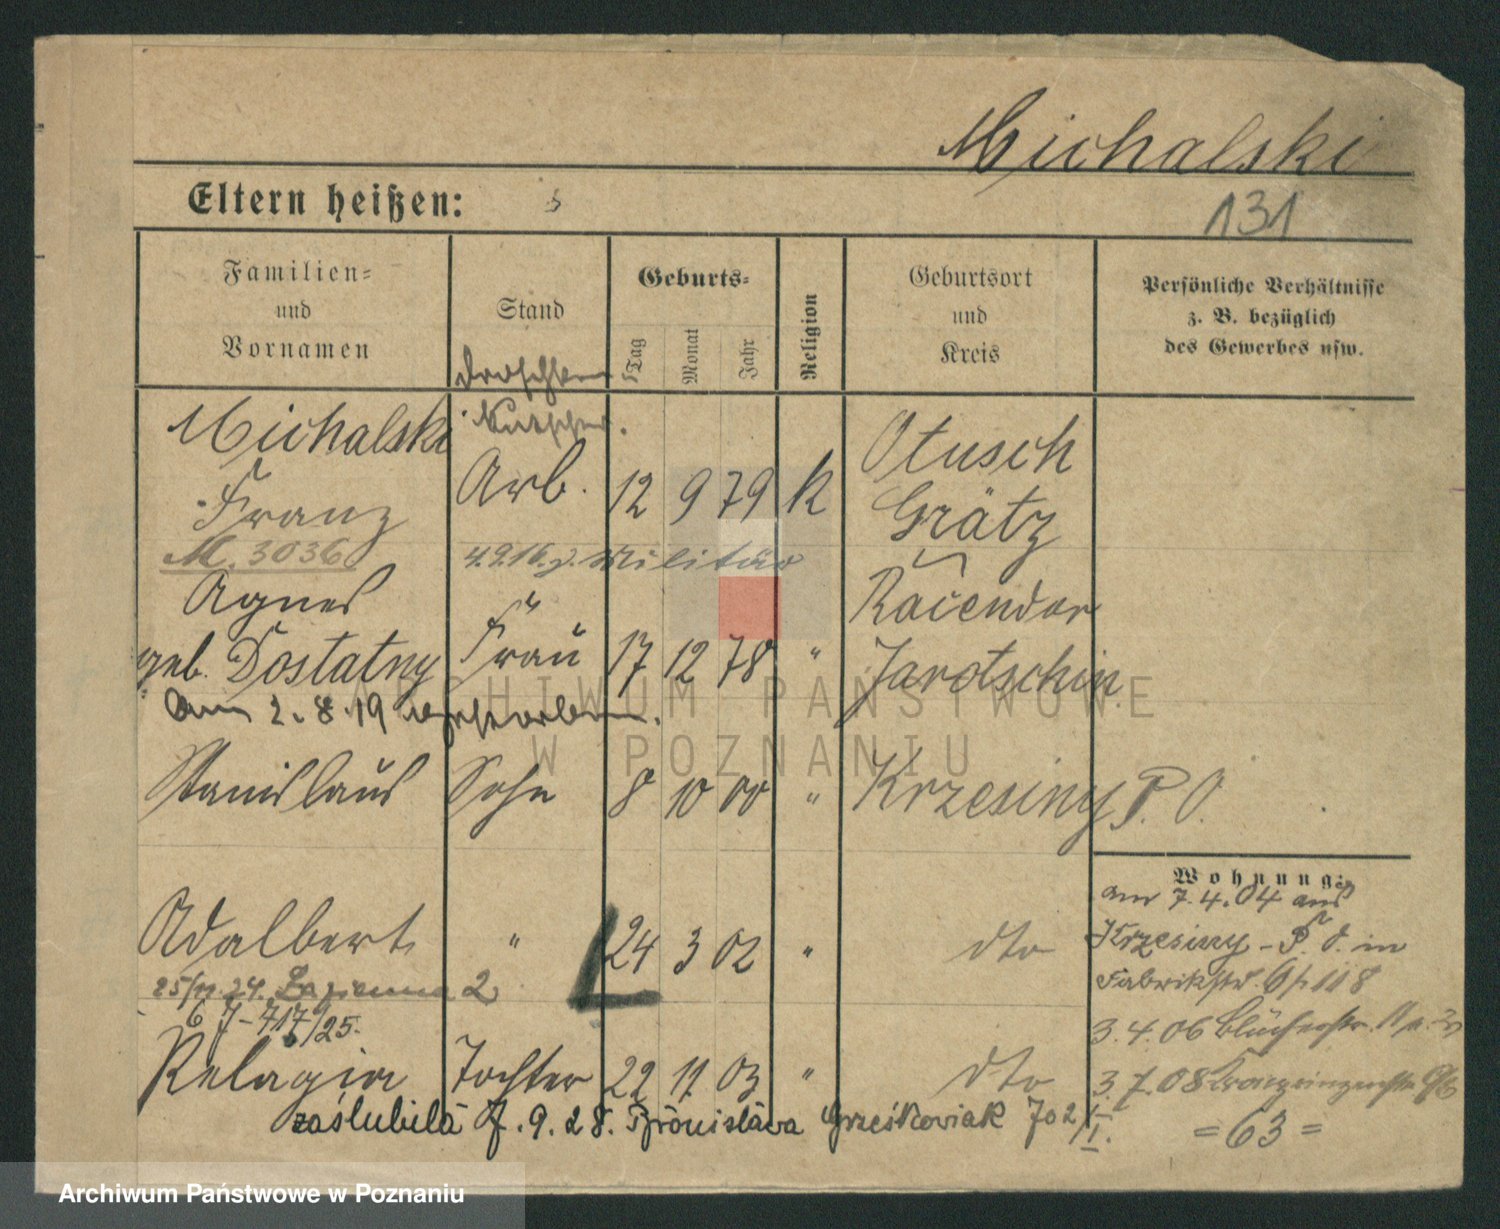 Michalski
Eltern heißen:
131
Familien=
und
Vornamen
Stand
Geburts=
Tag
Monat
Jahr
Religion
Geburtsort
und
Kreis
Persönliche Verhältnisse
z. B. bezüglich
des Gewerbes usw.
Droschken
Kutscher.
Michalski
Franz
Arb. 12 9 79 k
Otusch
Grätz
M. 3036
4.9.16. z. Militär
Agnes
geb. Dostatny
Frau 17 12 78 "
Racendor
Jarotschin
am 2. 8. 19 verstorben.
Stanislaus Sohn 8 10 00 " Krzesiny P. O.
Adalbert " 24 3 02 " dto
25/11. 24. Łazienna 2
Pelagia Tochter 22 11 03 " dto
zaślubiła 7. 9. 28. Bronisława Grześkowiak 702/I.
Wohnung:
am 7. 4. 04 aus
Krzesiny - P. O. in
Fabrikstr.
3. 4. 06 Blücherstr. 11
3. 7. 08 Kronprinzenstr.
=63=
ARCHIWUM PAŃSTWOWE
W POZNANIU
Archiwum Państwowe w Poznaniu